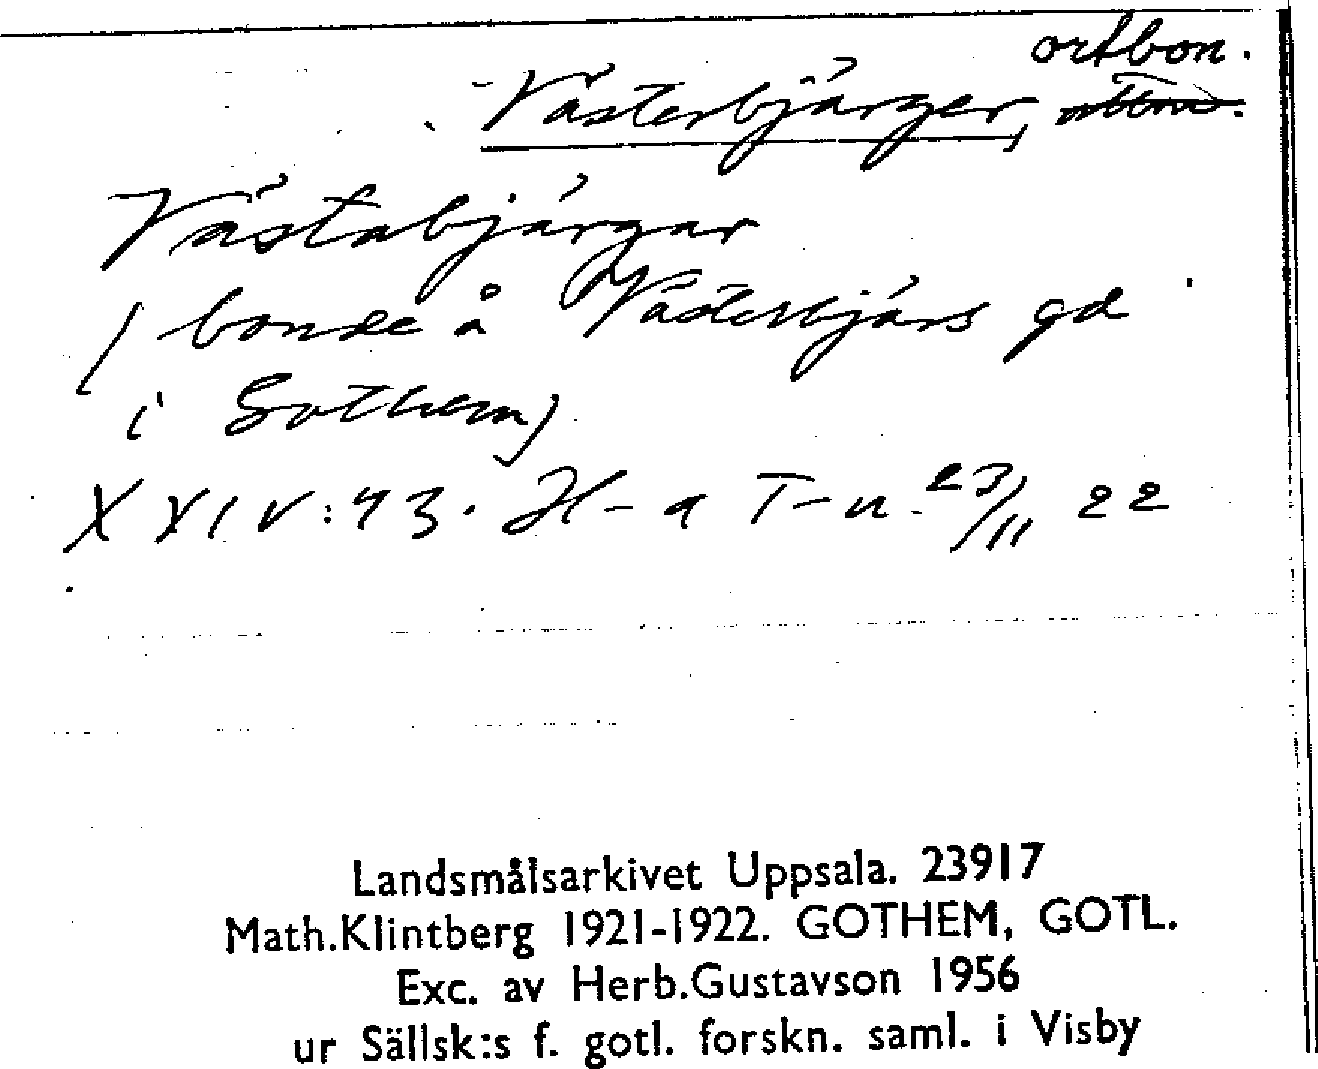 ortbon.
Västerbjärger,
Västabjärgar
(bonde å Västerbjärs gd
i Gothem)
XXIV:43. H-a T-n. 23/11 22
Landsmålsarkivet Uppsala. 23917
Math.Klintberg 1921-1922. GOTHEM, GOTL.
Exc. av Herb.Gustavson 1956
ur Sällsk:s f. gotl. forskn. saml. i Visby